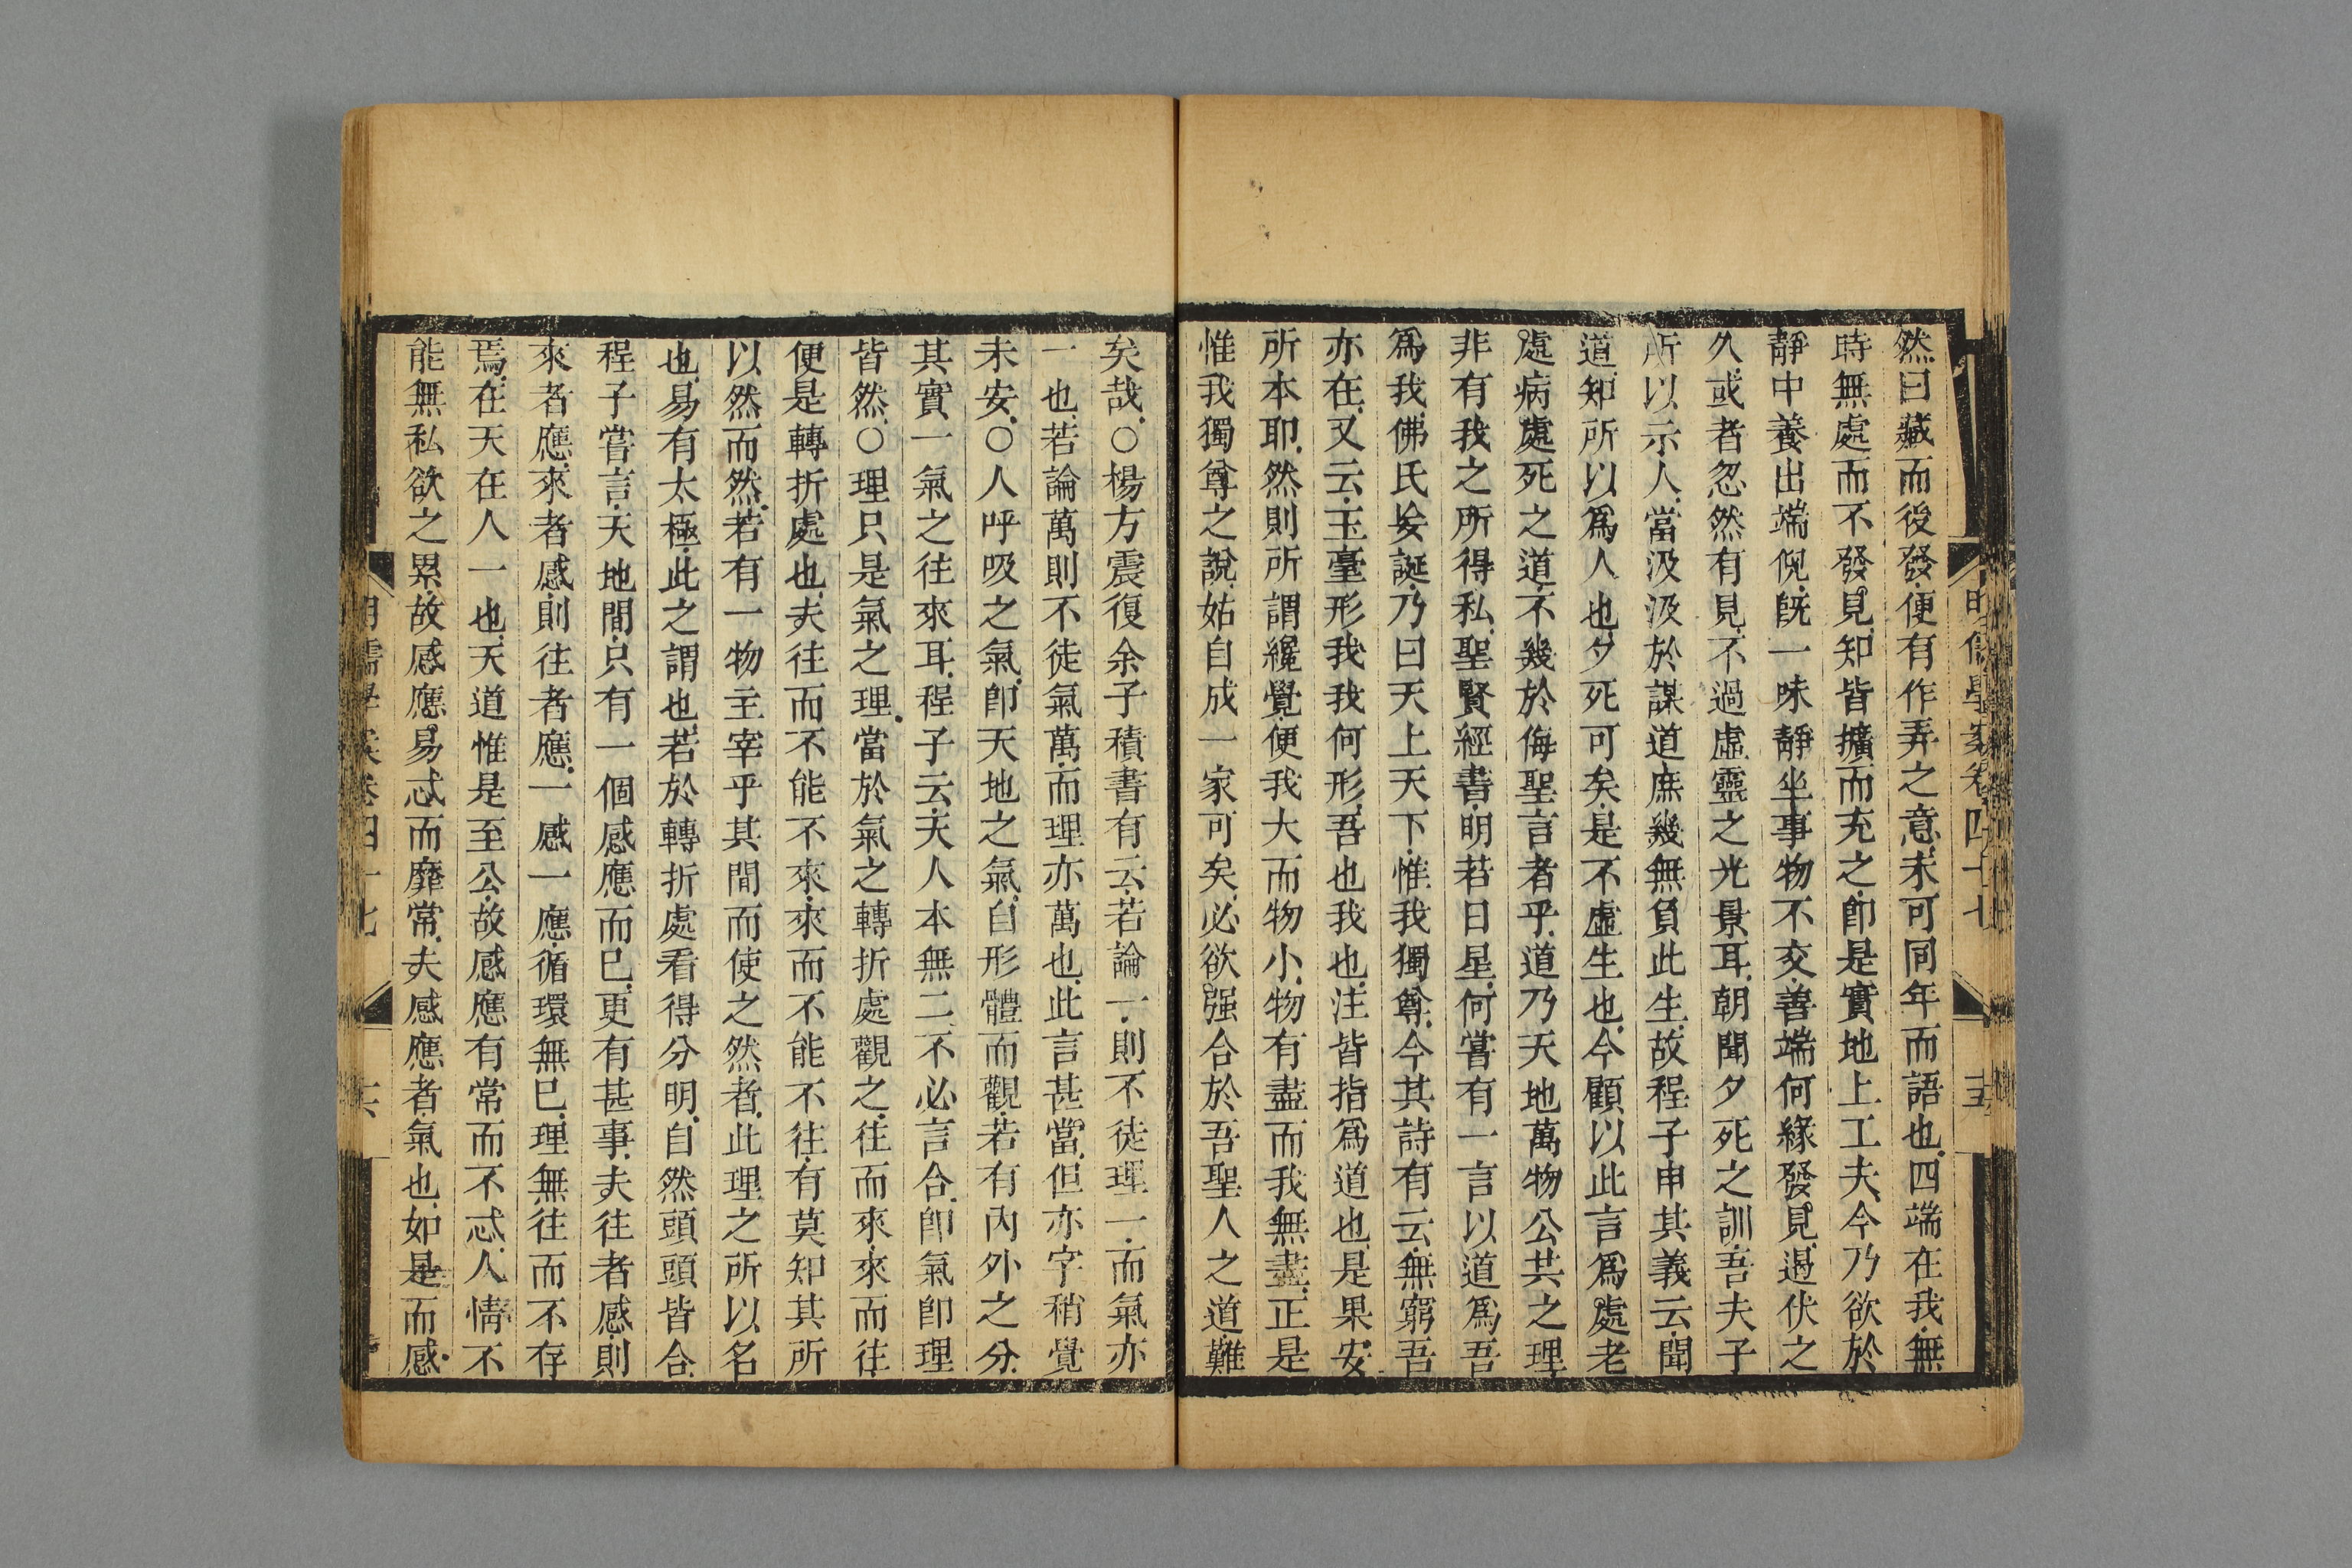 明儒學案卷四十七
十五
然曰藏而後發便有作弄之意未可同年而語也四端在我無
時無處而不發見知皆擴而充之卽是實地上工夫今乃欲於
靜中養出端倪旣一味靜坐事物不交善端何緣發見遏伏之
久或者忽然有見不過虛靈之光景耳朝聞夕死之訓吾夫子
所以示人當汲汲於謀道庶幾無負此生故程子申其義云聞
道知所以爲人也夕死可矣是不虛生也今顧以此言爲處老
處病處死之道不幾於侮聖言者乎道乃天地萬物公共之理
非有我之所得私聖賢經書明若日星何嘗有一言以道爲吾
爲我佛氏妄誕乃曰天上天下惟我獨尊今其詩有云無窮吾
亦在又云玉臺形我我何形吾也我也注皆指爲道也是果安
所本耶然則所謂纔覺便我大而物小物有盡而我無盡正是
惟我獨尊之說姑自成一家可矣必欲强合於吾聖人之道難
矣哉○楊方震復余子積書有云若論一則不徒理一而氣亦
一也若論萬則不徒氣萬而理亦萬也此言甚當但亦字稍覺
未安○人呼吸之氣卽天地之氣自形體而觀若有內外之分
其實一氣之往來耳程子云天人本無二不必言合卽氣卽理
皆然○理只是氣之理當於氣之轉折處觀之往而來來而往
便是轉折處也夫往而不能不來來而不能不往有莫知其所
以然而然若有一物主宰乎其間而使之然者此理之所以名
也易有太極此之謂也若於轉折處看得分明自然頭頭皆合
程子嘗言天地間只有一個感應而已更有甚事夫往者感則
來者應來者感則往者應一感一應循環無已理無往而不存
焉在天在人一也天道惟是至公故感應有常而不忒人情不
能無私欲之累故感應易忒而靡常夫感應者氣也如是而感
明儒學案卷四十七